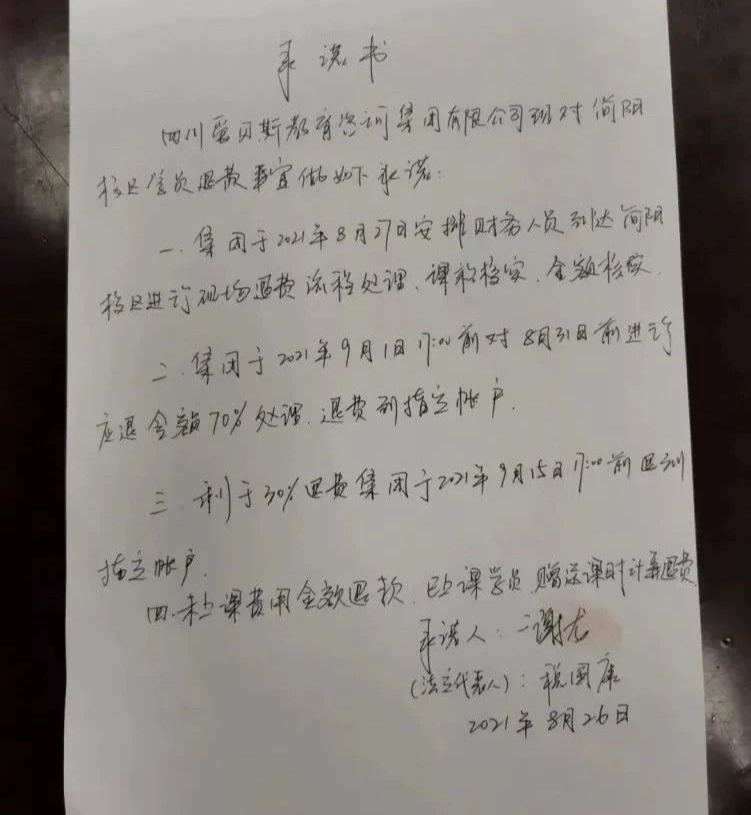 承诺书
四川爱贝斯教育咨询集团有限公司现对简阳
校区学员退款事宜做如下承诺:
一、集团于2021年8月27日安排财务人员到达简阳
校区进行现场退费流程处理、课程核实、金额核实.
二、集团于2021年9月1日17:00前对8月31日前进行
应退金额70%处理,退费到指定帐户.
三、剩于30%退费集团于2021年9月15日17:00前退到
指定帐户.
四、未上课费用全额退款,已上课学员赠送课时计算退费.
承诺人:谢尤
(法定代表人):税国康
2021年8月26日